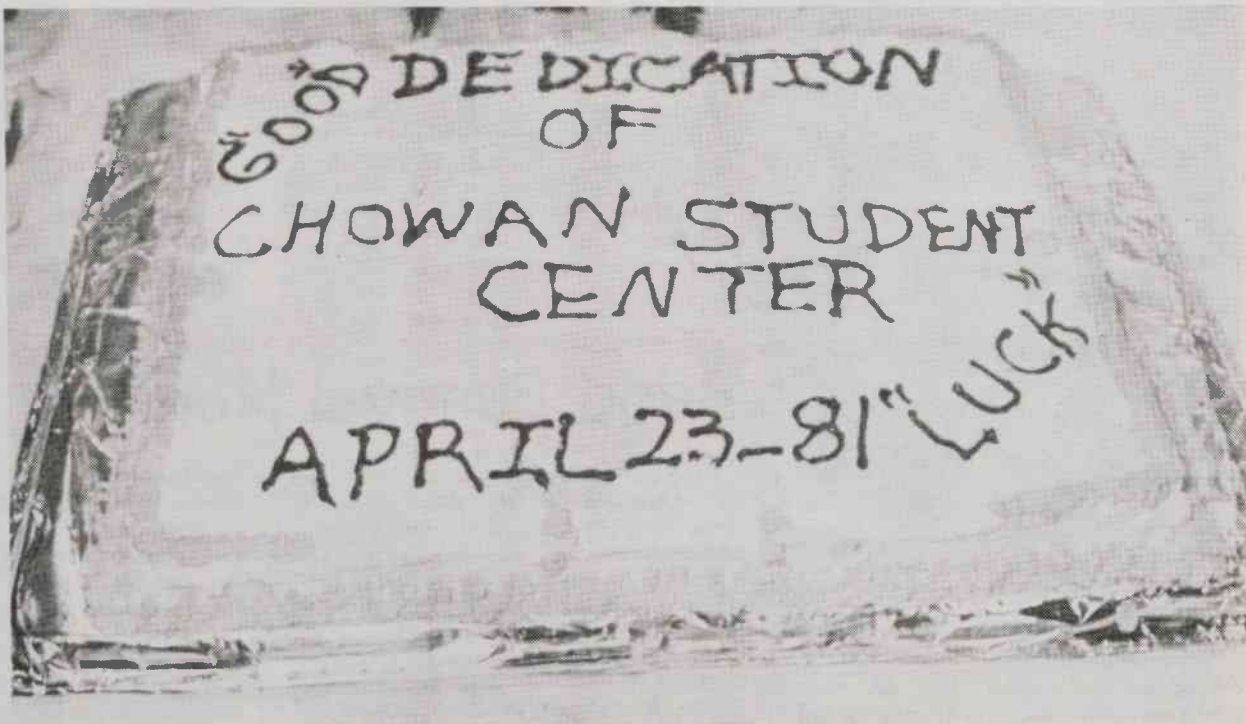 "GOOD"
DEDICATION
OF
CHOWAN STUDENT
CENTER
APRIL 23-81
"LUCK"